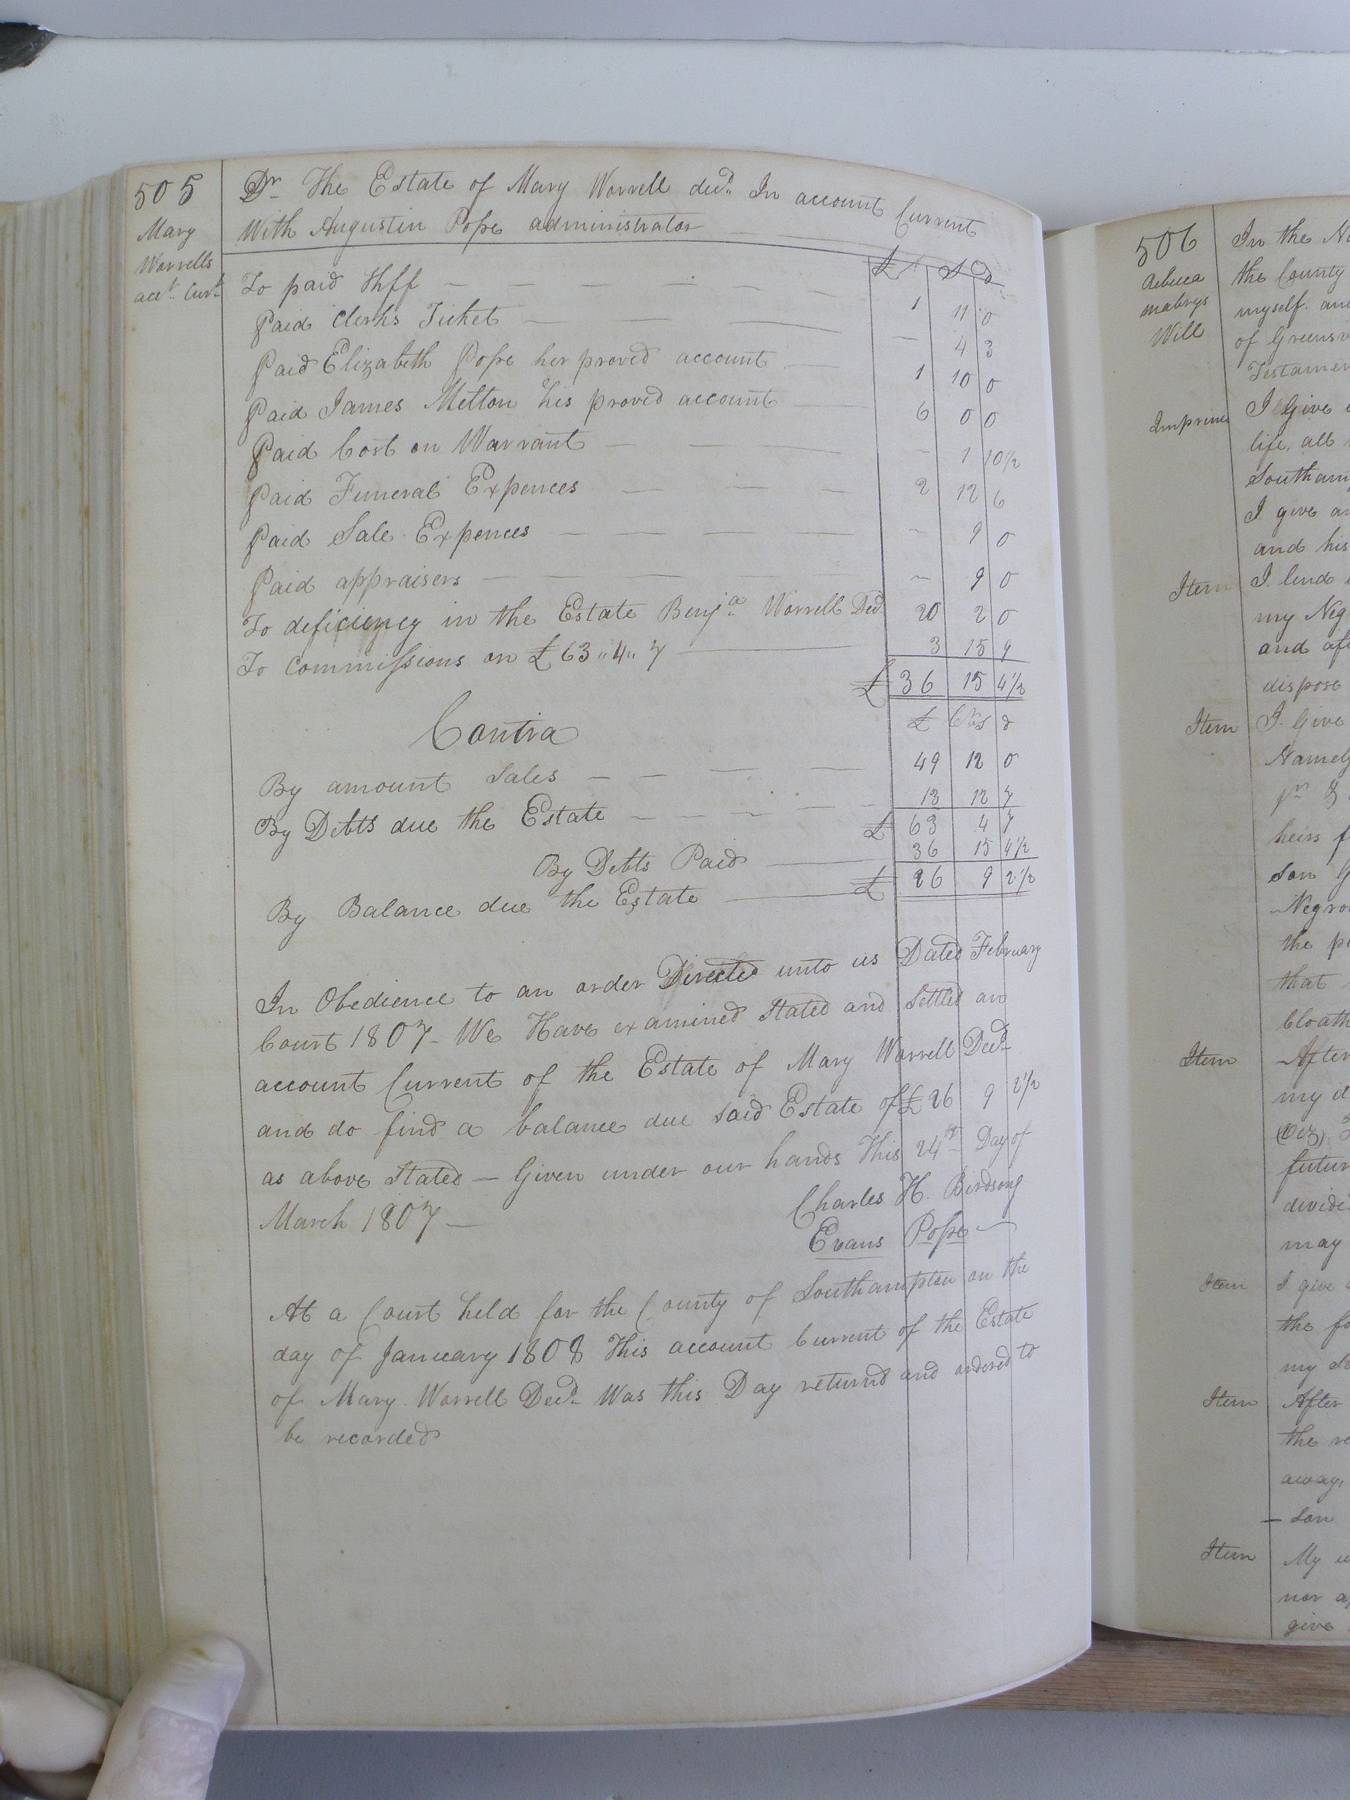 505
Mary
Worrells
acct. Curt.
Dr. The Estate of Mary Worrell decd. In account Current
With Augustin Pope administrator
£ S D
To paid Shff — — — — — — 1 11 0
Paid Clerks Ticket — — — — 4 3
Paid Elizabeth Pope her proved account — 1 10 0
Paid James Melton his proved account — 6 0 0
Paid Cost on Warrant — — — — 1 10 1/2
Paid Funeral Expences — — — 2 12 6
Paid Sale Expences — — — — — 9 0
Paid appraisers — — — — — 9 0
To deficiency in the Estate Benja. Worrell Decd. 20 2 0
To Commissions on £63 " 4 " 7 — 3 15 9
£ 36 15 4 1/2
Contra
£ S d
By amount Sales — — — — 49 12 0
By Debts due the Estate — — — — — 13 12 7
£ 63 4 7
By Debts Paid — 36 15 4 1/2
By Balance due the Estate — £ 26 9 2 1/2
In Obedience to an order Directed unto us Dated February
Court 1807 – We Have examined Stated and Settled an
account Current of the Estate of Mary Worrell Decd.
and do find a balance due said Estate of £26 9 2 1/2
as above Stated — Given under our hands This 24th Day of
March 1807 —
Charles H. Birdsong
Evans Pope —
At a Court held for the County of Southampton on the
day of January 1808 This account Current of the Estate
of Mary Worrell Decd. Was this Day returnd and ordered to
be recorded
506
Rebecca
mabrys
Will
In the
the County
myself and
of
I Give
Imprimis
life, all
I give
and his
Item
I lend
my
and
dispose
Item
I. Give
heirs
Son
the
that
Item
After
my
divide
may
Item
I give
the
my
Item
After
the
away,
– Son
Item
My
nor
give